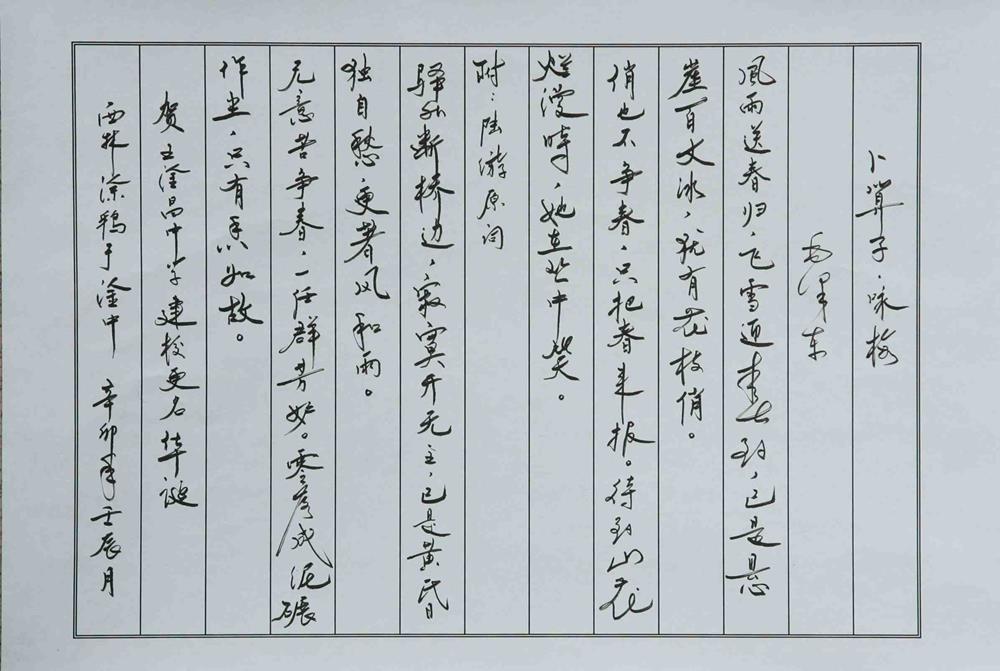 卜算子·咏梅
毛泽东
风雨送春归，飞雪迎春到，已是悬
崖百丈冰，犹有花枝俏。
俏也不争春，只把春来报。待到山花
烂漫时，她在丛中笑。
附：陆游原词
驿外断桥边，寂寞开无主，已是黄昏
独自愁，更著风和雨。
无意苦争春，一任群芳妒。零落成泥碾
作尘，只有香如故。
贺五淦昌中学建校更名华诞
西林涂鸦于淦中 辛卯年壬辰月